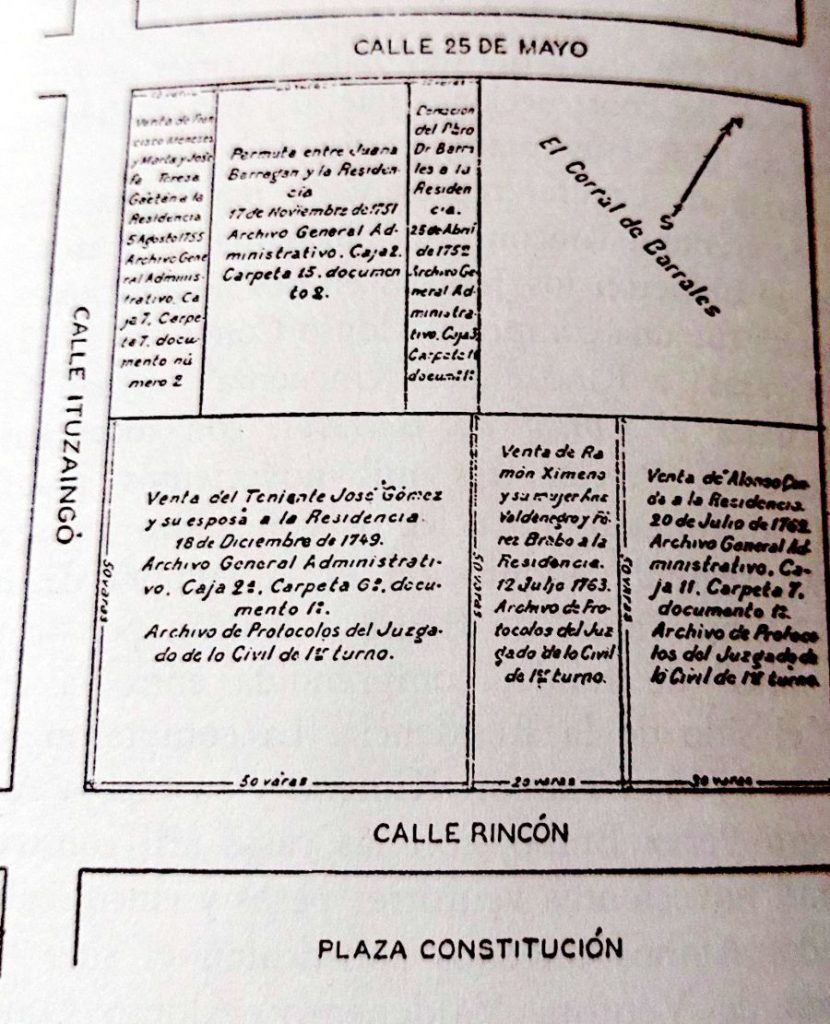 CALLE 25 DE MAYO
Venta de Fran
cisco Meneses
y María y José
fa Teresa
Gaetan a la
Residencia
5 Agosto 1755
Archivo Gene
ral Adminis-
trativo. Ca
ja 7. Carpe
ta 7. docu
mento nú
mero 2
Permuta entre Juana
Barragan y la Residen-
cia
17 de Noviembre de 1751
Archivo General Ad-
ministrativo. Caja 2.
Carpeta 15. documen
to 2.
Donacion
del Pbro
Dr Barra
les a la
Residen
cia.
25 de Abril
de 175
Archivo Ge
neral Ad-
ministra-
tivo. Caja 3
Carpeta
docum.
El Corral de Barrales
S
CALLE ITUZAINGÓ
Venta del Teniente José Gómez
y su esposa a la Residencia.
18 de Diciembre de 1749.
Archivo General Administrati-
vo. Caja 2ª. Carpeta 6ª. docu-
mento 1º.
Archivo de Protocolos del Juzga-
do de lo Civil de 1er turno.
50 varas
50 varas
50 varas
Venta de Ra
món Ximeno
y su mujer Ana
Valdenegro y Pé
rez Brabo a la
Residencia.
12 Julio 1763.
Archivo de Pro
tocolos del Juz
gado de lo Civil
de 1er turno.
20 varas
50 varas
Venta de Alonso Con-
de a la Residencia.
20 de Julio de 1762.
Archivo General Ad-
ministrativo. Ca-
ja 11. Carpeta 7.
documento 1º.
Archivo de Protoco
los del Juzgado de
lo Civil de 1er turno.
varas
CALLE RINCÓN
PLAZA CONSTITUCIÓN